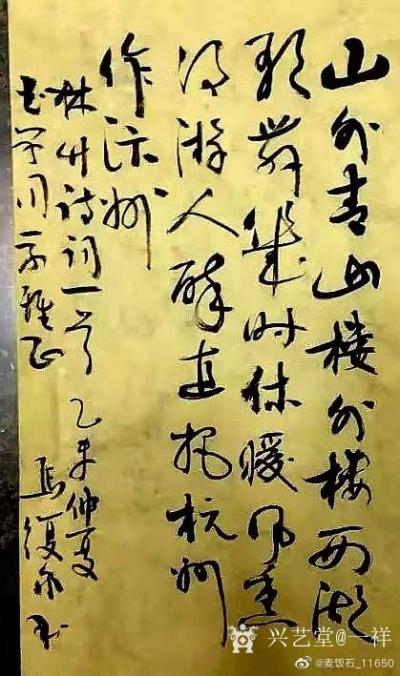 山外青山楼外楼西湖
歌舞幾时休暖风熏
得游人醉直把杭州
作汴州
林升诗词一首 乙未仲夏
雅正 书
兴艺堂@一祥
@麦饭石_11650